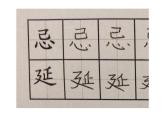 忌忌忌
延延延延